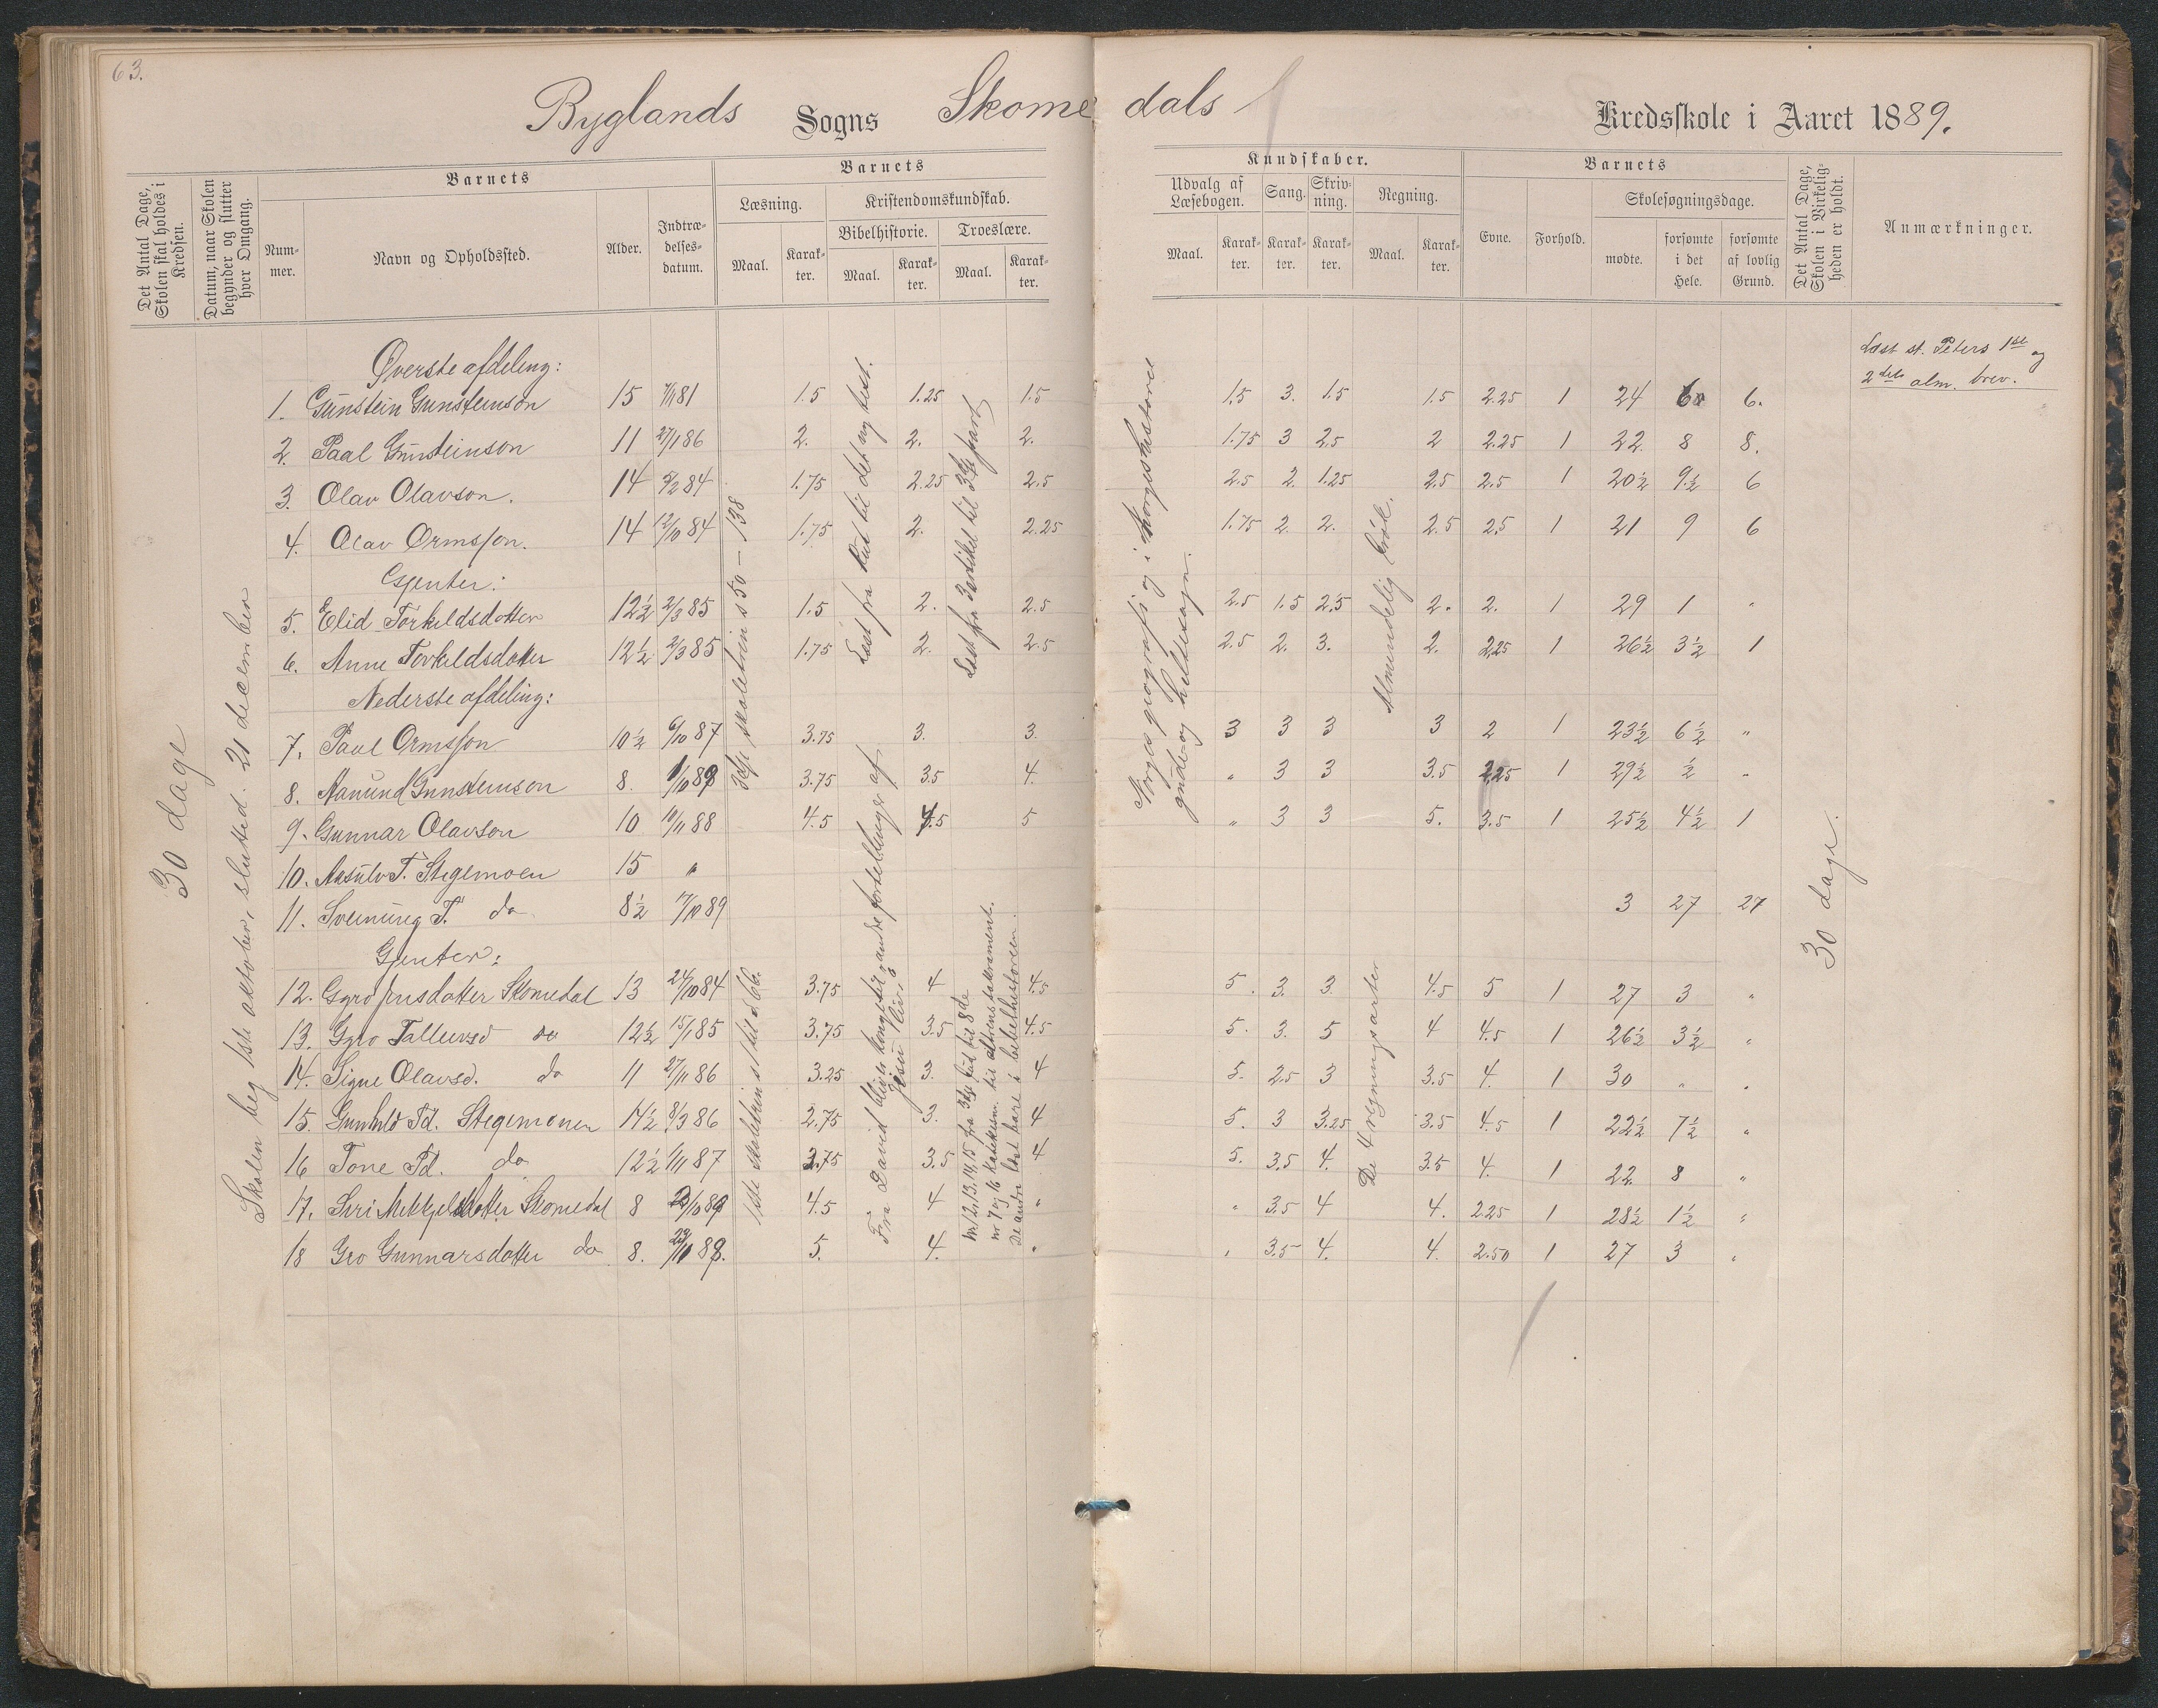 63.
Byglands Sogns Skomedals Kredsskole i Aaret 1889.
Det Antal Dage, Skolen skal holdes i Kredsen.
Datum, naar Skolen begynder og slutter hver Omgang.
Barnets
Nummer.
Navn og Opholdssted.
Alder.
Indtrædelsesdatum.
Barnets
Læsning.
Maal.
Karakter.
Kristendomskundskab.
Bibelhistorie.
Maal.
Karakter.
Troeslære.
Maal.
Karakter.
Kundskaber.
Udvalg af Læsebogen.
Maal.
Karakter.
Sang.
Karakter.
Skrivning.
Karakter.
Regning.
Maal.
Karakter.
Barnets
Evne.
Forhold.
Skolesøgningsdage.
mødte.
forsømte i det Hele.
forsømte af lovlig Grund.
Det Antal Dage, Skolen i Virkeligheden er holdt.
Anmærkninger.
30 dage
Skolen beg 1ste oktober, slutted. 21 december
Øverste afdeling:
1. Gunstein Gunsteinson 15 81 1.5 1.25 1.5 1.5 3. 1.5 1.5 2.25 1 24 6 6.
2. Paal Gunsteinson 11 27/1 86 2. 2. 2. 1.75 3 2.5 2 2.25 1 22 8 8.
3. Olav Olavson. 14 84 1.75 2.25 2.5 2.5 2. 1.25 2.5 2.5 1 20½ 9½ 6
4. Olav Ormsson. 14 12/10 84 1.75 2. 2.25 1.75 2 2. 2.5 2.5 1 21 9 6
Gjenter:
5. Elid Torkildsdotter 12½ 2/3 85 1.5 2. 2.5 2.5 1.5 2.5 2. 2. 1 29 1 "
6. Anne Torkildsdotter 12½ 2/3 85 1.75 2. 2.5 2.5 2. 3. 2. 2.25 1 26½ 3½ 1
Nederste afdeling:
7. Paul Ormsson 10½ 6/10 87 3.75 3. 3. 3 3 3 3 2 1 23½ 6½ "
8. Aanund Gunsteinson 8. 1/10 89 3.75 3.5 4. " 3 3 3.5 2.25 1 29½ ½ "
9. Gunnar Olavson 10 10/11 88 4.5 4.5 5 " 3 3 5. 3.5 1 25½ 4½ 1
10. Aasulv T. Stegemoen 15 "
11. Sveinung T. do 8½ 17/10 89 3 27 27
Gjenter:
12. Gyro Jensdatter Skomedal 13 24/10 84 3.75 4 4.5 5. 3. 3. 4.5 5 1 27 3 "
13. Gyro Tallevsd do 12½ 15/1 85 3.75 3.5 4.5 5. 3. 5 4 4.5 1 26½ 3½ "
14. Signe Olavsd. do 11 27/11 86 3.25 3. 4 5. 2.5 3 3.5 4. 1 30 " "
15. Gunhild Td. Stegemonen 14½ 8/3 86 2.75 3. 4 5. 3 3.25 3.5 4.5 1 22½ 7½ "
16 Tone Td. do 12½ 1/11 87 3.75 3.5 4 5. 3.5 4. 3.5 4. 1 22 8 "
17. Siri Mikkjelsdotter Skomedal 8 89 4.5 4 " " 3.5 4 4. 2.25 1 28½ 1½ "
18 Gro Gunnarsdotter do 8. 89. 5. 4. " " 3.5 4. 4. 2.50 1 27 3 "
3dje skoletrin s 50 – 138
1ste skoletrin s 1 til s 66.
Læst fra Rut til det ny test.
Fra David bliver konge til andre fortellinger af Jesu liv
Læst fra 3 artikel til 3dje part
Nr 12, 13, 14, 15 fra 3dje bud til 8de
nr 7 og 16 Katekism. til altrens sakrament.
De andre læst bare i bibelhistorien.
Norges geografi og i Norgeshistorie
gude- og heltesagn.
Almindelig brøk.
De 4 regningsarter
30 dage.
Læst st. Peters 1ste og
2det alm. brev.